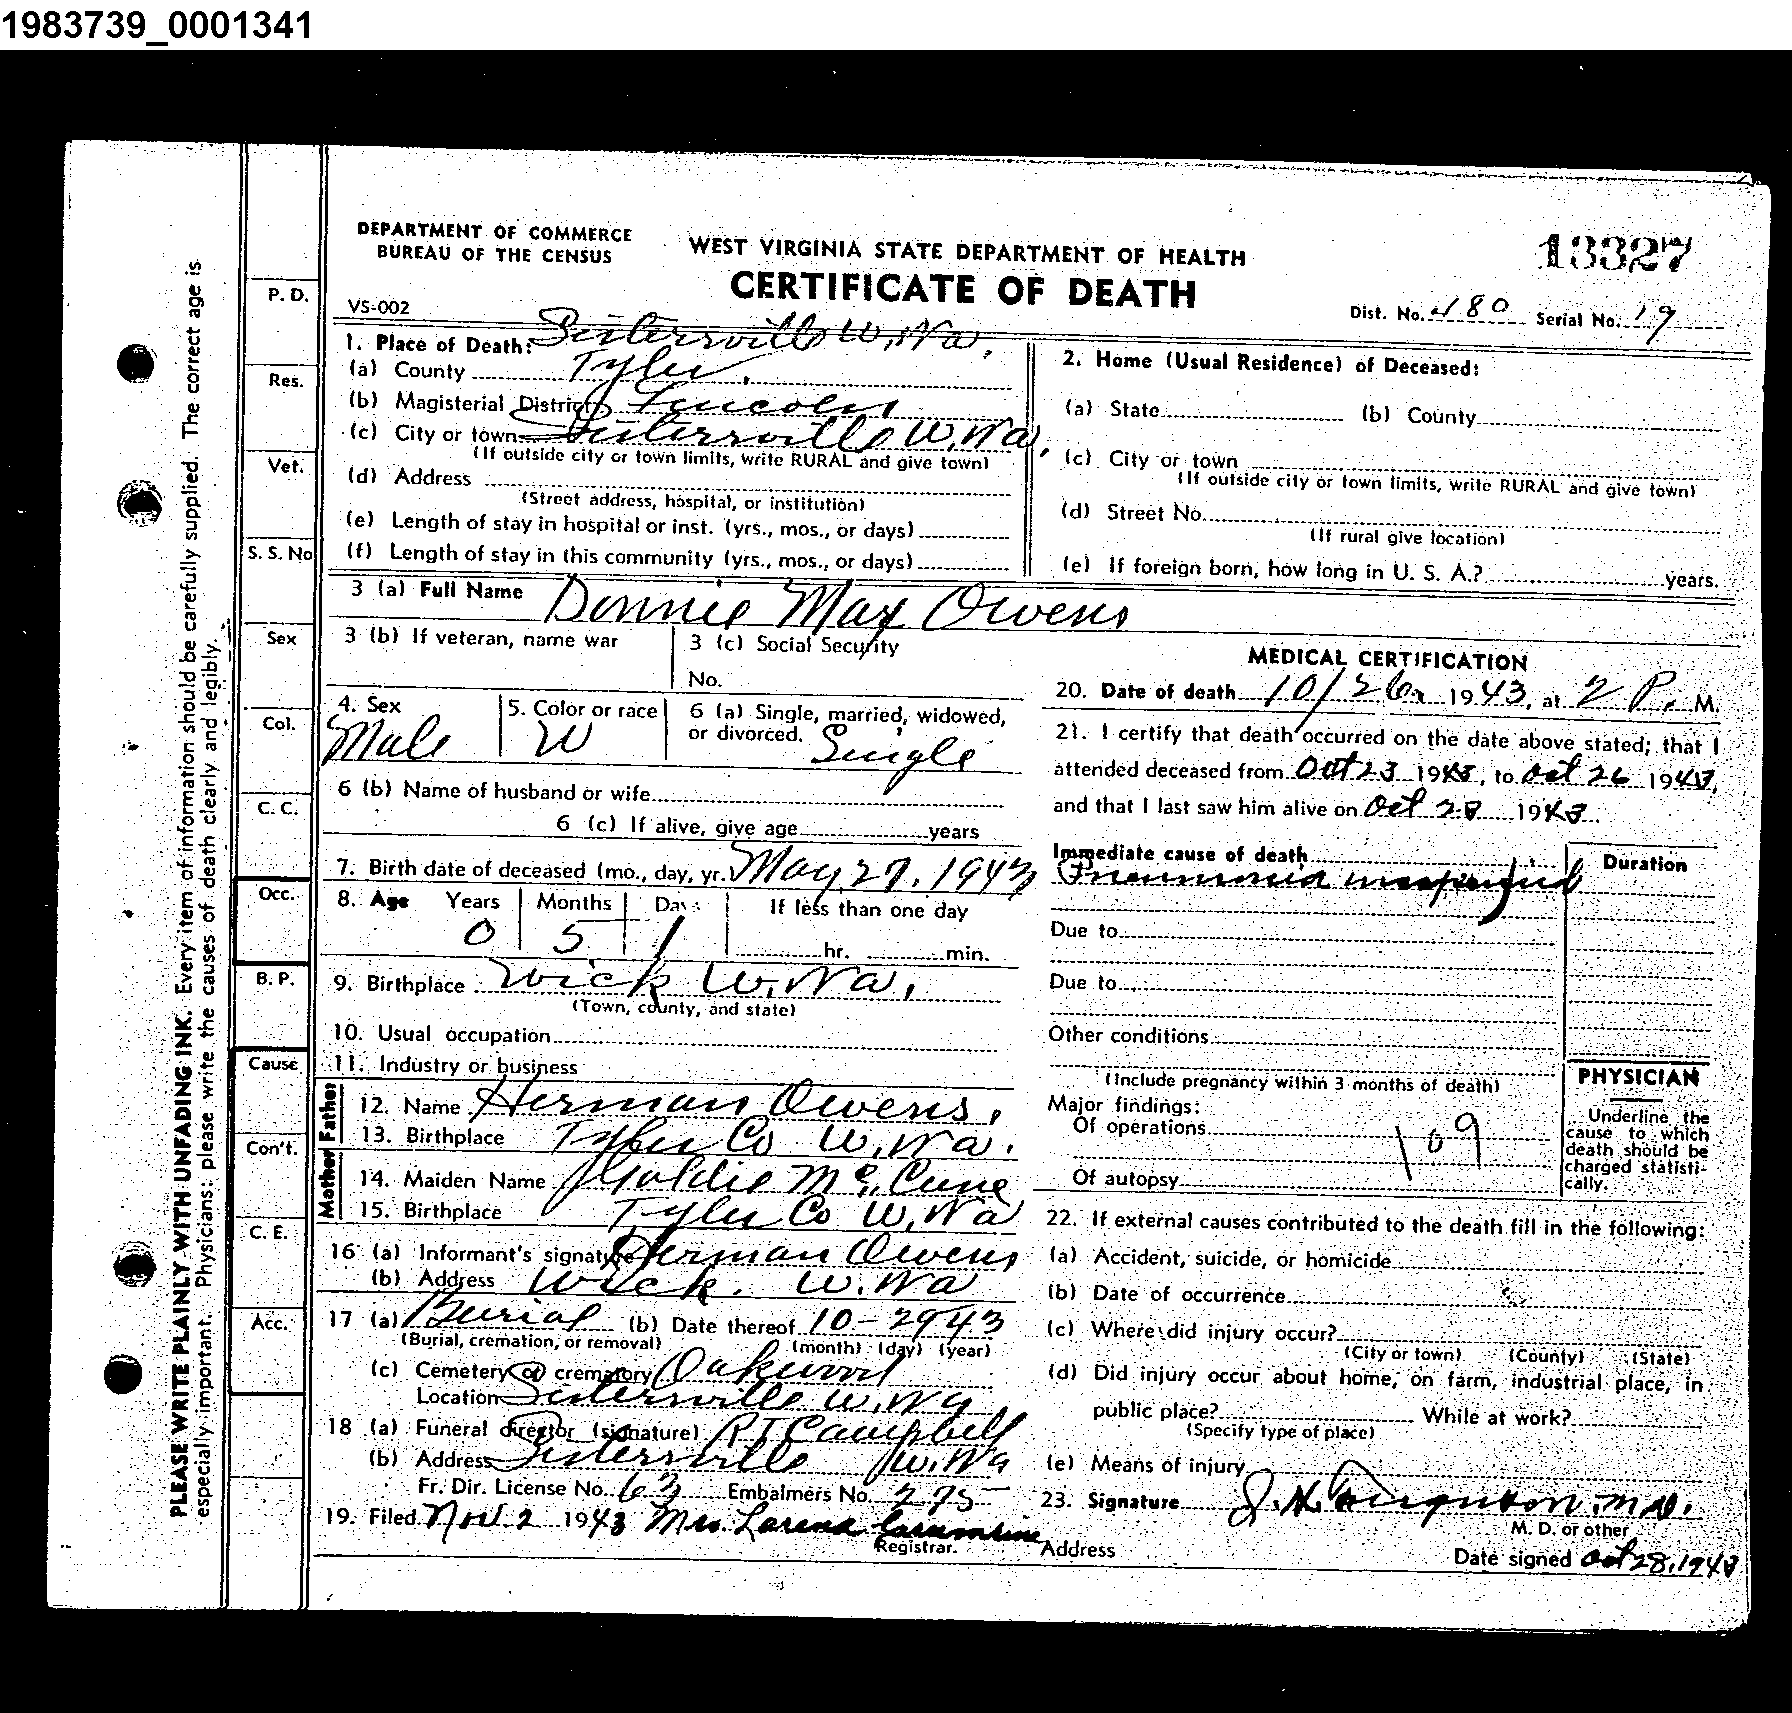 1983739_0001341
DEPARTMENT OF COMMERCE
BUREAU OF THE CENSUS
WEST VIRGINIA STATE DEPARTMENT OF HEALTH
CERTIFICATE OF DEATH
13327
VS-002
Dist. No. 480 Serial No. 19
PLEASE WRITE PLAINLY WITH UNFADING INK. Every item of information should be carefully supplied. The correct age is
especially important. Physicians: please write the causes of death clearly and legibly.
P. D.
Res.
Vet.
S. S. No
Sex
Col.
C. C.
Occ.
B. P.
Cause
Con't.
C. E.
Acc.
1. Place of Death: Sistersville W. Va.
(a) County Tyler.
(b) Magisterial District Lincoln
(c) City or town Sistersville W. Va.
(If outside city or town limits, write RURAL and give town)
(d) Address
(Street address, hospital, or institution)
(e) Length of stay in hospital or inst. (yrs., mos., or days)
(f) Length of stay in this community (yrs., mos., or days)
2. Home (Usual Residence) of Deceased:
(a) State (b) County
(c) City or town
(If outside city or town limits, write RURAL and give town)
(d) Street No.
(If rural give location)
(e) If foreign born, how long in U. S. A.? years.
3 (a) Full Name Donnie Max Owens
3 (b) If veteran, name war
3 (c) Social Security
No.
4. Sex Male
5. Color or race W
6 (a) Single, married, widowed,
or divorced. Single
6 (b) Name of husband or wife
6 (c) If alive, give age years
7. Birth date of deceased (mo., day, yr.) May 27, 1943
8. Age Years Months Days If less than one day
0 5 1 hr. min.
9. Birthplace Wick W. Va.
(Town, county, and state)
10. Usual occupation
11. Industry or business
Father
12. Name Herman Owens.
13. Birthplace Tyler Co W. Va.
Mother
14. Maiden Name Goldie McCune
15. Birthplace Tyler Co W. Va
16 (a) Informant's signature Herman Owens
(b) Address Wick. W. Va
17 (a) Burial (b) Date thereof 10-29 43
(Burial, cremation, or removal) (month) (day) (year)
(c) Cemetery or crematory Oakwood
Location Sistersville W. Va
18 (a) Funeral director (signature) R T Campbell
(b) Address Sistersville W. Va
Fr. Dir. License No. 63 Embalmers No. 275
19. Filed Nov. 2 1943 Mrs. Lorena
Registrar.
MEDICAL CERTIFICATION
20. Date of death 10/26 1943, at 2 P. M.
21. I certify that death occurred on the date above stated; that I
attended deceased from Oct 23 1943, to Oct 26 1943,
and that I last saw him alive on Oct 1943.
Immediate cause of death
Pneumonia
Duration
Due to
Due to
Other conditions
(Include pregnancy within 3 months of death)
Major findings:
Of operations
109
Of autopsy
PHYSICIAN
Underline the
cause to which
death should be
charged statisti-
cally.
22. If external causes contributed to the death fill in the following:
(a) Accident, suicide, or homicide
(b) Date of occurrence
(c) Where did injury occur?
(City or town) (County) (State)
(d) Did injury occur about home, on farm, industrial place, in
public place? While at work?
(Specify type of place)
(e) Means of injury
23. Signature M.D.
M. D. or other
Address
Date signed Oct 28, 1943